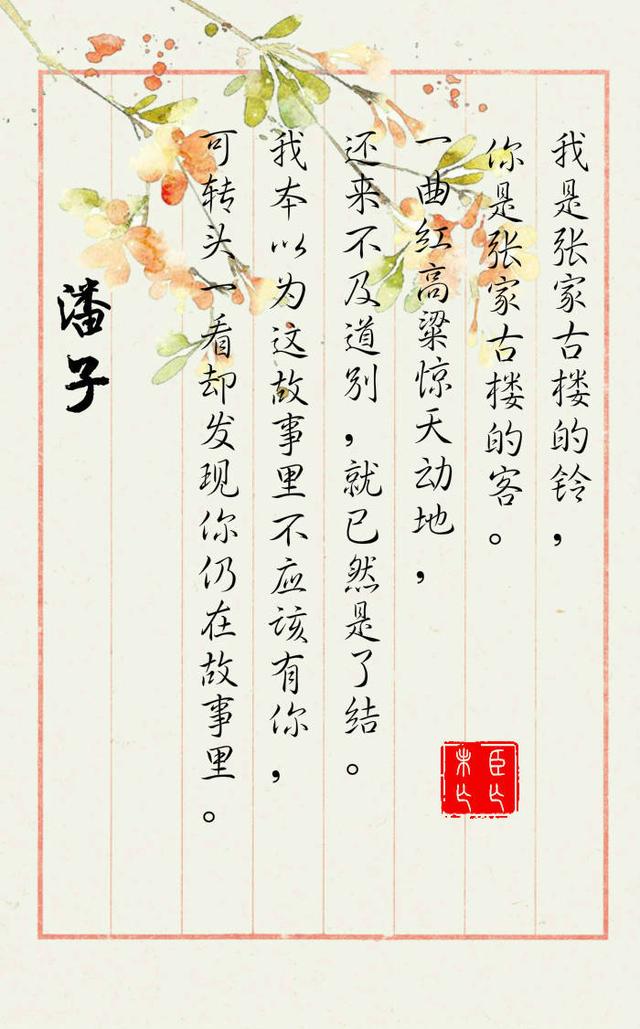 我是张家古楼的铃，
你是张家古楼的客。
一曲红高粱惊天动地，
还来不及道别，就已然是了结。
我本以为这故事里不应该有你，
可转头一看却发现你仍在故事里。
潘子